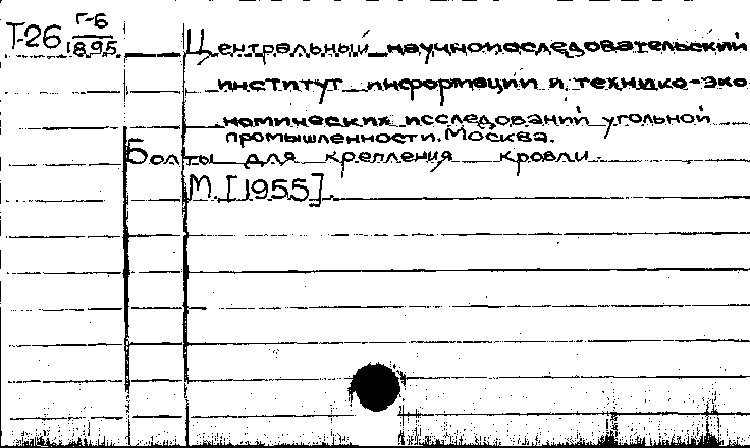 Т-26 Г-6
1895
Центральный научноисследовательский
институт информации и технико-эко
номических исследований угольной
промышленности. Москва.
Болты для крепления кровли.
М. [1955].